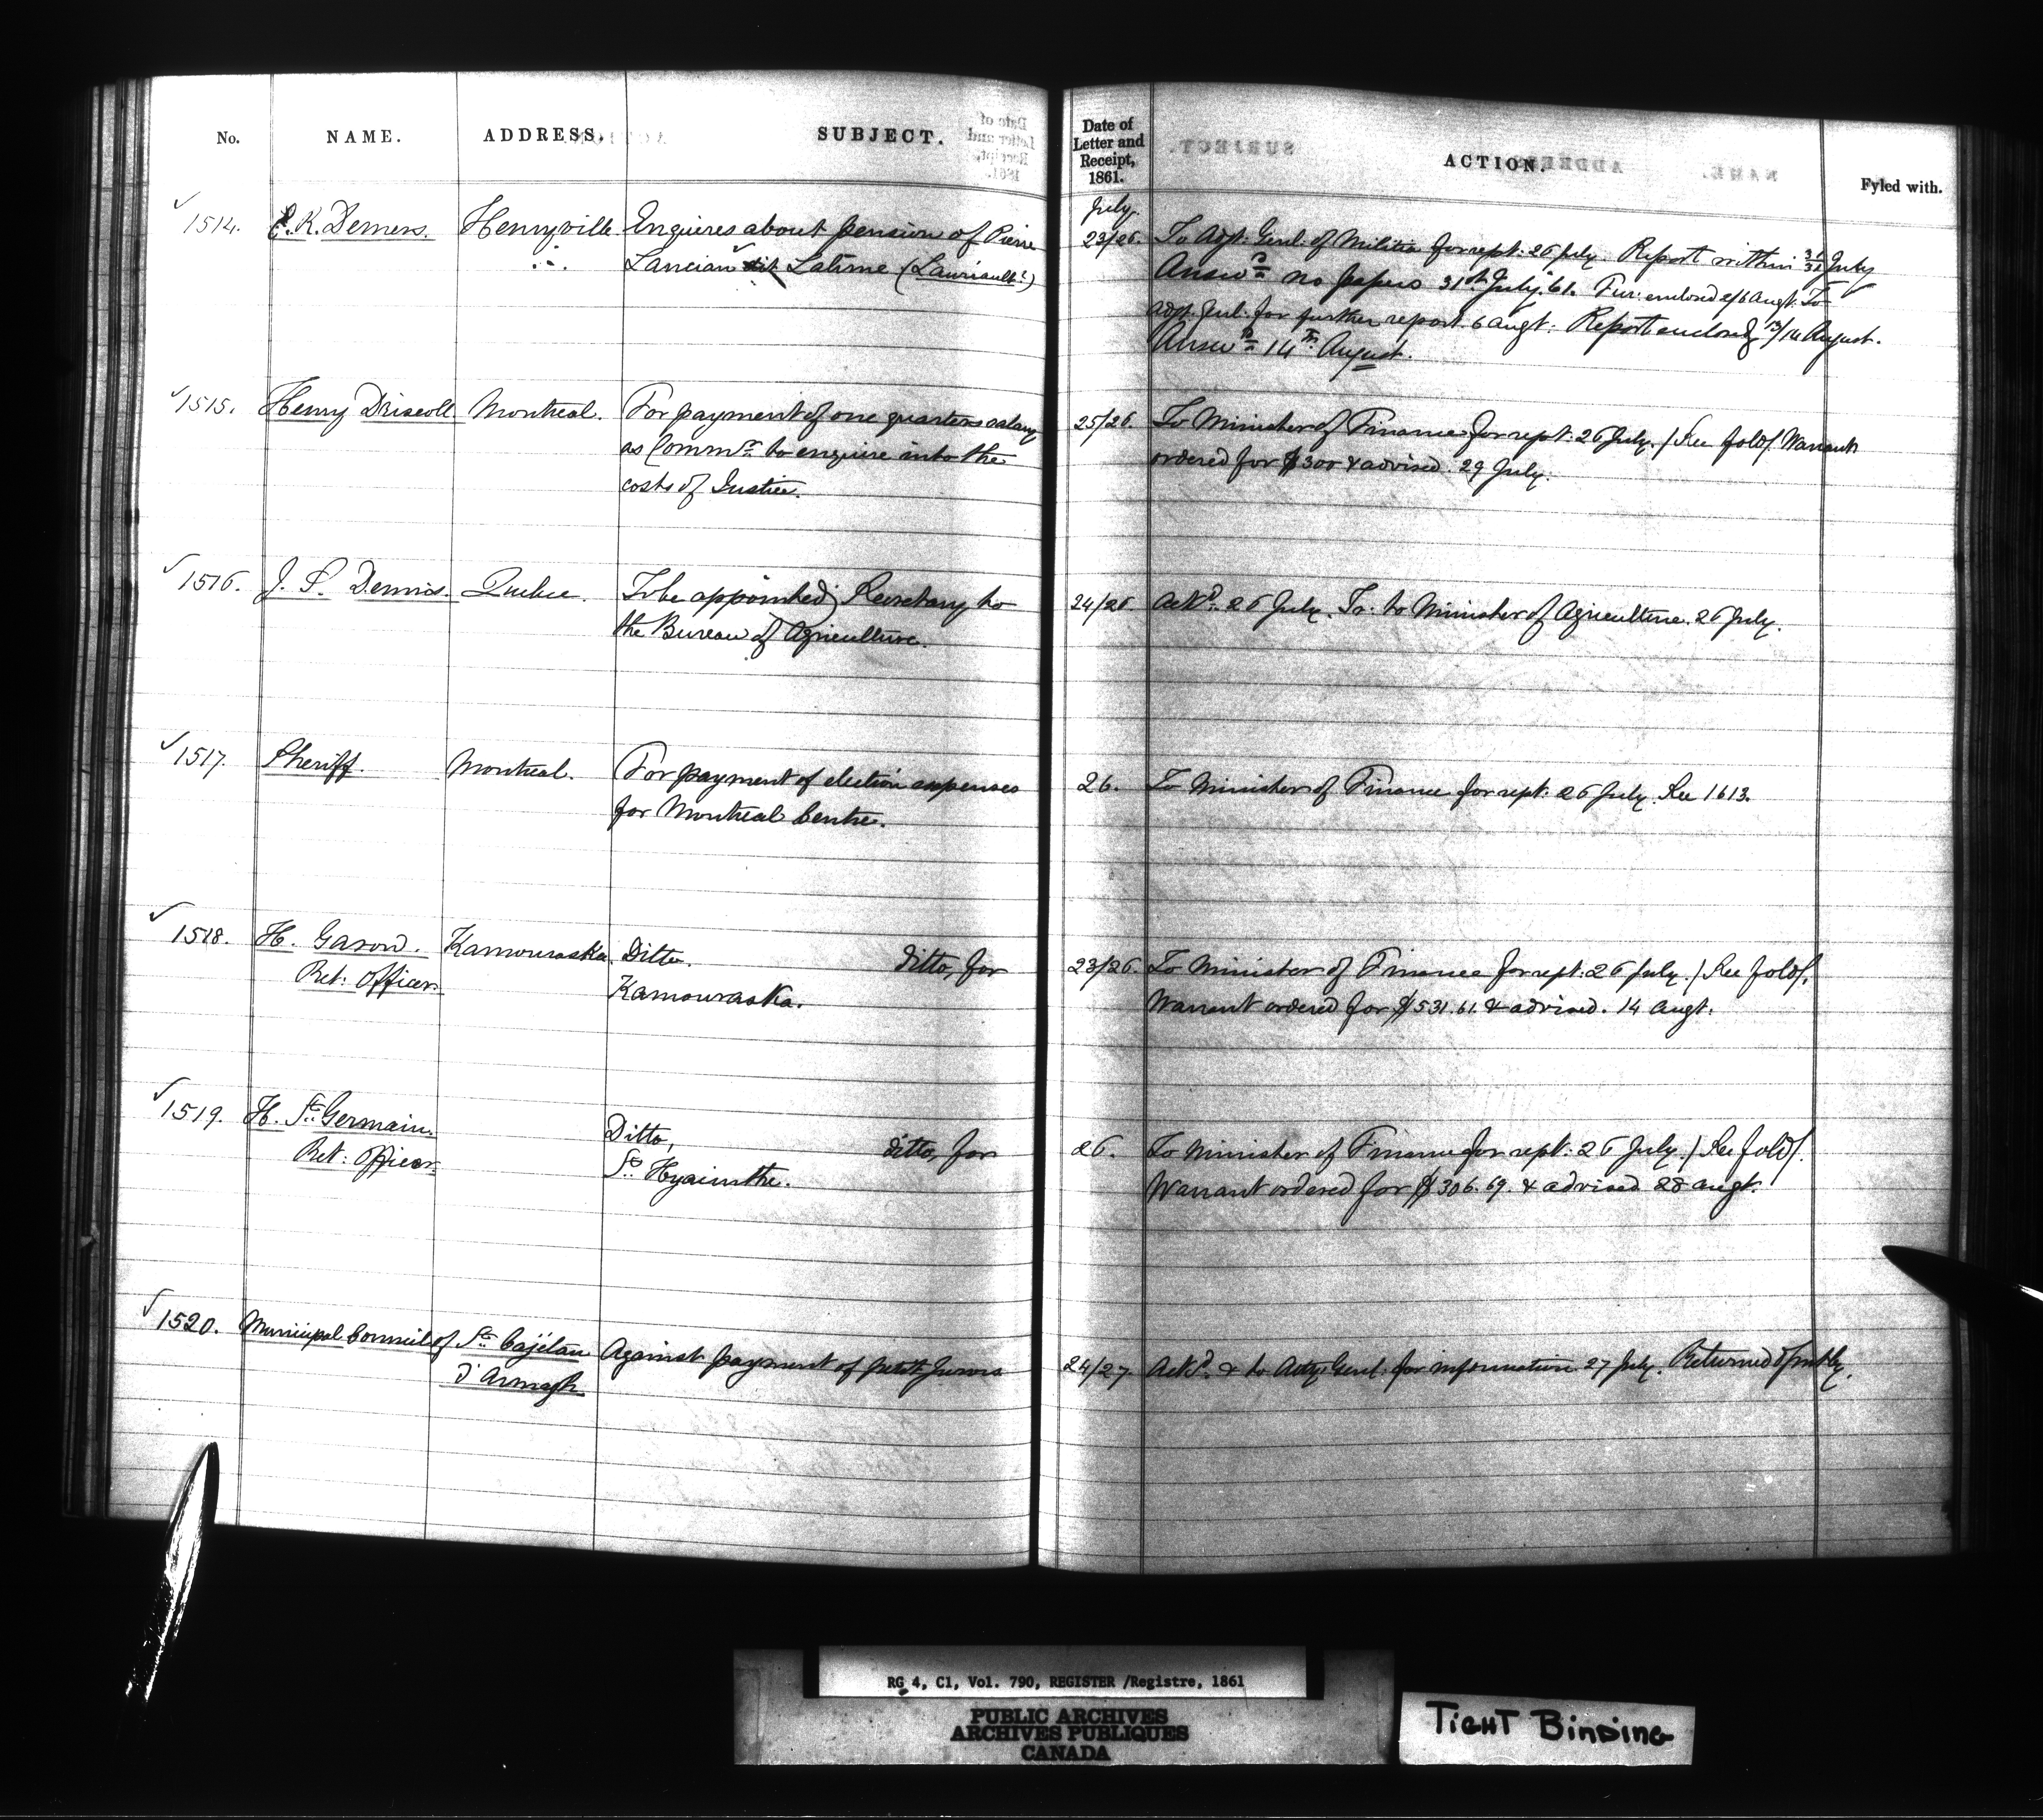 No. NAME. ADDRESS. SUBJECT.
Date of Letter and Receipt, 1861. ACTION. Fyled with.
July
1514. K. Demers. Henryville Enquires about pension of Pierre
Lancian dit Latime (Lauriault?)
23/26. To Adjt: Genl: of Militia for rept: 26 July. Report within 31/31 July
Answd no papers 31st July 61. Fur: enclosed 2/6 Augt: To
Adjt. Gul: for further report. 6 Augt: Report enclosed 13/14 August.
Answd 14th August.
1515. Henry Driscoll Montreal. For payment of one quarters salary
as Commr to enquire into the
costs of Justice.
25/26. To Minister of Finance for rept: 26 July. / See fold/. Warrant
ordered for $300 & advised. 29 July.
1516. J. S. Dennis. Quebec. To be appointed Secretary to
the Bureau of Agriculture.
24/26 Ackd. 26 July. To: to Minister of Agriculture. 26 July.
1517. Sheriff. Montreal. For payment of election expenses
for Montreal Centre.
26. To Minister of Finance for rept: 26 July. See 1613.
1518. H. Garon. Kamouraska. Ditto. ditto, for
Ret: Officer. Kamouraska.
23/26. To Minister of Finance for rept: 26 July. / See fold/.
Warrant ordered for $531.61. & advised. 14 Augt:
1519. H. St. Germain. Ditto, ditto, for
Ret: Officer. St. Hyacinthe.
26. To Minister of Finance for rept: 26 July. / See fold/.
Warrant ordered for $306.69. & advised 28 Augt.
1520. Municipal Council of St. Cajétan Against payment of petit Jurors
D'Armagh
24/27. Ackd. & to Atty: Genl. for information 27 July. Returned
RG 4, C1, Vol. 790, REGISTER /Registre, 1861
PUBLIC ARCHIVES
ARCHIVES PUBLIQUES
CANADA
TIGHT BINDING